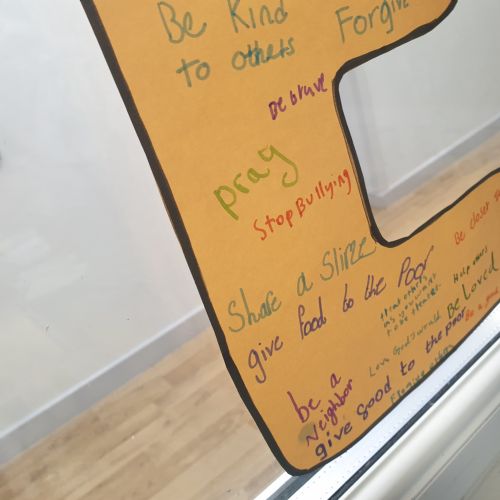 Be Kind
to others
Forgive
Be brave
pray
Stop Bullying
Be closer
Share a Slize
give food to the Poor
Help others
Be Loved
Be a good
be a
Neighbor
give good to the poor